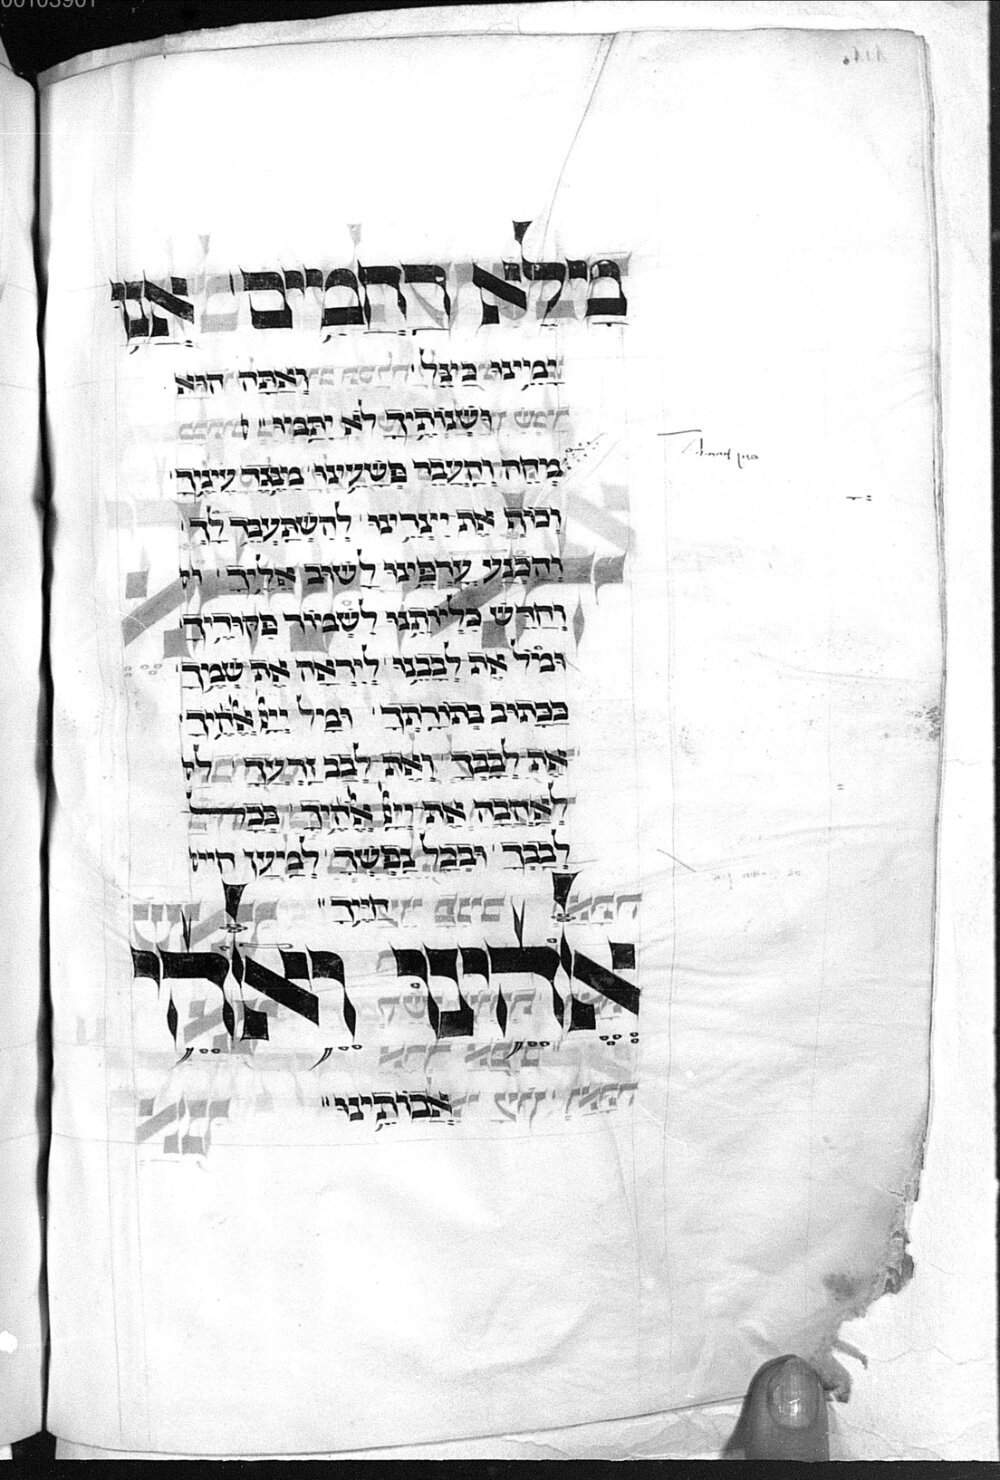 מילא רחמים אנו
ימינו כיצל ואתה הוא
ושנותיך לא יתמו
מחה והעבר פשעינו מנגד עיניך
וכוף את יצרינו להשתעבד לך
והכנע ערפינו לשוב אליך
וחדש כליותינו לשמור פקודיך
ומול את לבבנו ליראה את שמך
ככתוב בתורתך ומל ייי אלהיך
את לבבך ואת לבב זרעך
לאהבה את ייי אלהיך בכל
לבבך ובכל נפשך למען חייך
אלהינו ואלהי
אבותינו